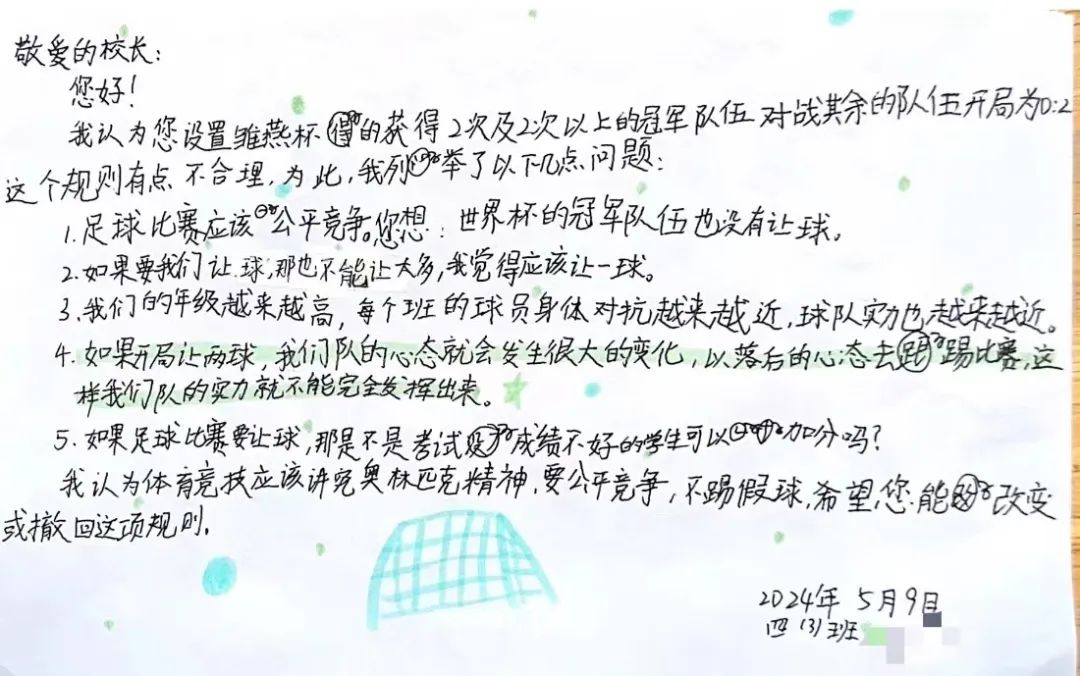 敬爱的校长：
您好！
我认为您设置雏燕杯的获得2次及2次以上的冠军队伍对战其余的队伍开局为0:2
这个规则有点不合理，为此，我列举了以下几点问题：
1.足球比赛应该公平竞争。您想：世界杯的冠军队伍也没有让球。
2.如果要我们让球，那也不能让太多，我觉得应该让一球。
3.我们的年级越来越高，每个班的球员身体对抗越来越近，球队实力也越来越近。
4.如果开局让两球，我们队的心态就会发生很大的变化，以落后的心态去踢比赛，这
样我们队的实力就不能完全发挥出来。
5.如果足球比赛要让球，那是不是考试成绩不好的学生可以加分吗？
我认为体育竞技应该讲究奥林匹克精神，要公平竞争，不踢假球，希望您能改变
或撤回这项规则。
2024年5月9日
四（3）班